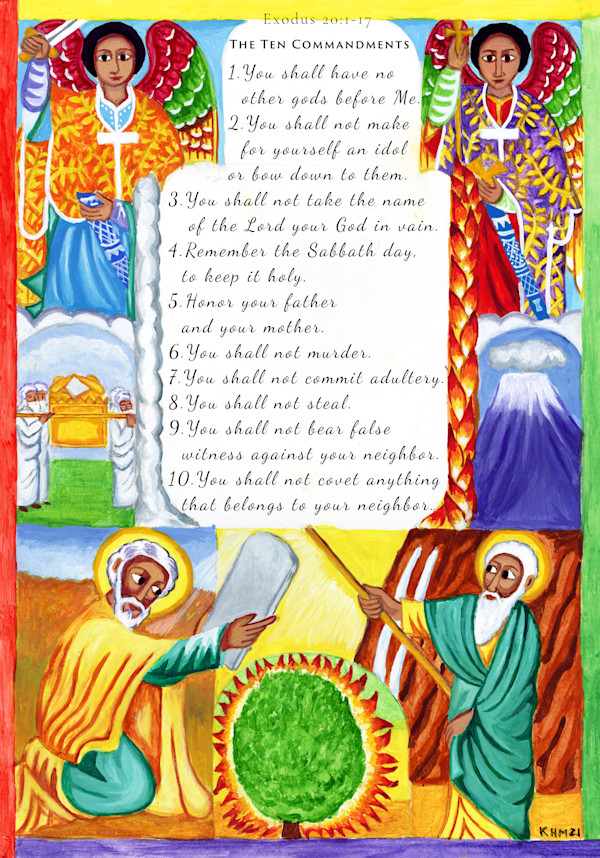 Exodus 20:1-17
THE TEN COMMANDMENTS
1. You shall have no
other gods before Me.
2. You shall not make
for yourself an idol
or bow down to them.
3. You shall not take the name
of the Lord your God in vain.
4. Remember the Sabbath day,
to keep it holy.
5. Honor your father
and your mother.
6. You shall not murder.
7. You shall not commit adultery.
8. You shall not steal.
9. You shall not bear false
witness against your neighbor.
10. You shall not covet anything
that belongs to your neighbor.
KHM21